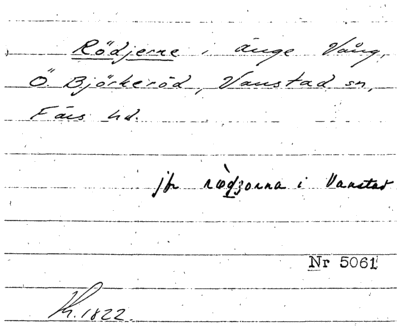 Rödjerne i änge Vång,
Ö Björkeröd, Vanstad sn,
Färs hd.
jfr rødzorna i Vanstad
Nr 5061
K. 1822.